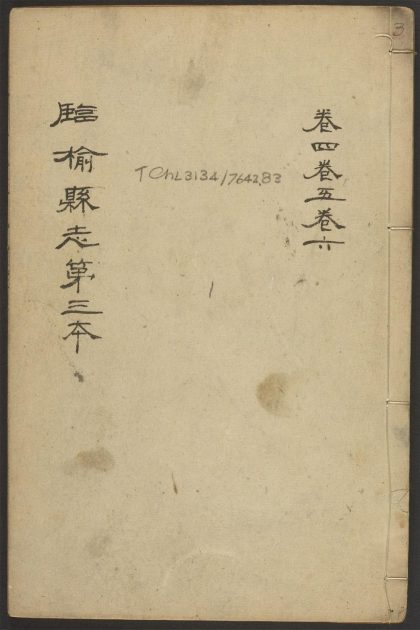 3
卷四卷五卷六
TChL3134/7642.83
臨榆縣志第三本